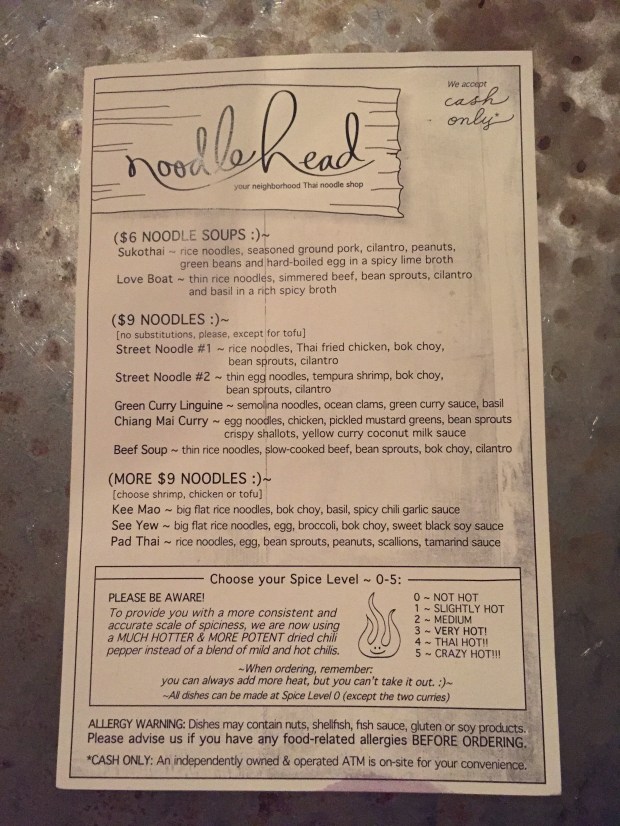 We accept
cash
only*
noodlehead
your neighborhood Thai noodle shop
($6 NOODLE SOUPS :)~
Sukothai ~ rice noodles, seasoned ground pork, cilantro, peanuts,
green beans and hard-boiled egg in a spicy lime broth
Love Boat ~ thin rice noodles, simmered beef, bean sprouts, cilantro
and basil in a rich spicy broth
($9 NOODLES :)~
[no substitutions, please, except for tofu]
Street Noodle #1 ~ rice noodles, Thai fried chicken, bok choy,
bean sprouts, cilantro
Street Noodle #2 ~ thin egg noodles, tempura shrimp, bok choy,
bean sprouts, cilantro
Green Curry Linguine ~ semolina noodles, ocean clams, green curry sauce, basil
Chiang Mai Curry ~ egg noodles, chicken, pickled mustard greens, bean sprouts
crispy shallots, yellow curry coconut milk sauce
Beef Soup ~ thin rice noodles, slow-cooked beef, bean sprouts, bok choy, cilantro
(MORE $9 NOODLES :)~
[choose shrimp, chicken or tofu]
Kee Mao ~ big flat rice noodles, bok choy, basil, spicy chili garlic sauce
See Yew ~ big flat rice noodles, egg, broccoli, bok choy, sweet black soy sauce
Pad Thai ~ rice noodles, egg, bean sprouts, peanuts, scallions, tamarind sauce
Choose your Spice Level ~ 0-5:
PLEASE BE AWARE!
To provide you with a more consistent and
accurate scale of spiciness, we are now using
a MUCH HOTTER & MORE POTENT dried chili
pepper instead of a blend of mild and hot chilis.
0 ~ NOT HOT
1 ~ SLIGHTLY HOT
2 ~ MEDIUM
3 ~ VERY HOT!
4 ~ THAI HOT!!
5 ~ CRAZY HOT!!!
~When ordering, remember:
you can always add more heat, but you can't take it out. :)~
~All dishes can be made at Spice Level 0 (except the two curries)
ALLERGY WARNING: Dishes may contain nuts, shellfish, fish sauce, gluten or soy products.
Please advise us if you have any food-related allergies BEFORE ORDERING.
*CASH ONLY: An independently owned & operated ATM is on-site for your convenience.